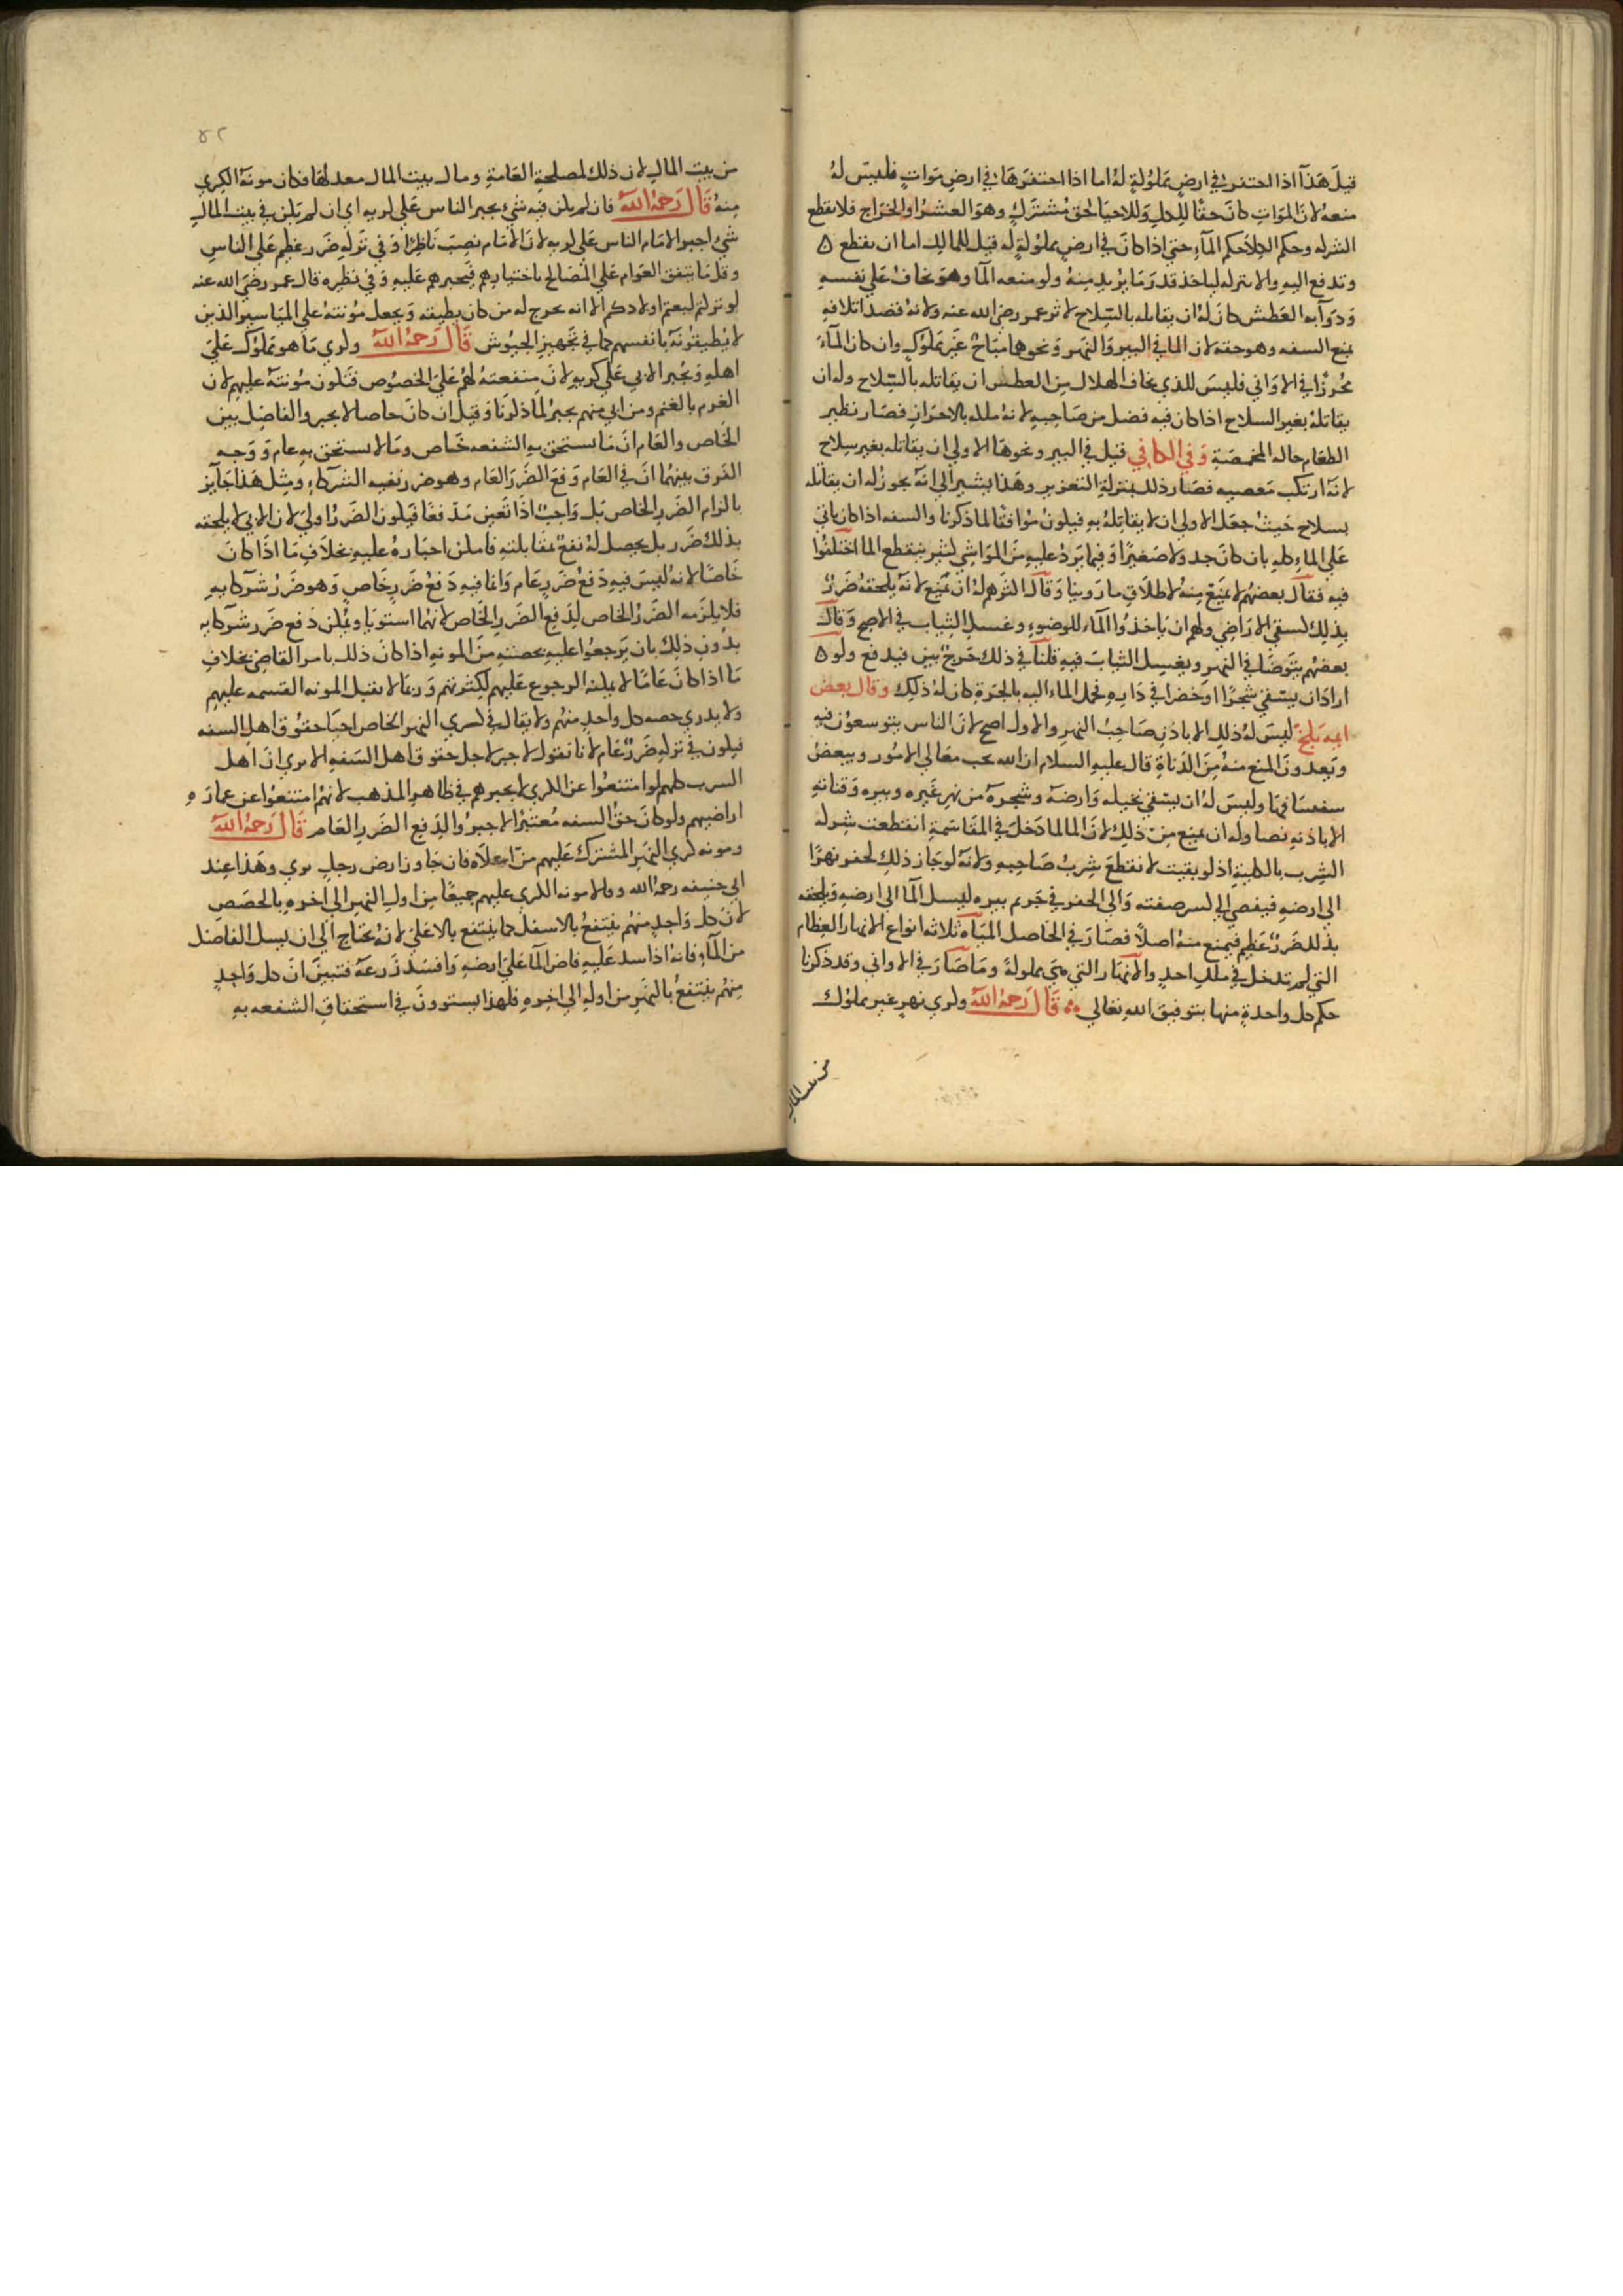 قيل هذا اذا احتفر في ارض مملولة له اما اذا احتفرها في ارض موات فليس له
منعه لان الموات كان حقا للكل وللاحيا لحق مشترك وهو العشر او الخراج فلا يقطع
الشركة وحكم الكلا حكم الماء حتي اذا كان في ارض مملوكة له قيل للمالك اما ان يقطع
وتدفع اليه والا يتركه لياخذ قدر ما يريد منه ولو منعه الما وهو يخاف علي نفسه
ودوابه العطش كان له ان يقاتله بالسلاح لاثر عمر رضي الله عنه ولانه قصد اتلافه
بمنع السفه وهو حقه لان الما في البير والنهر ونحوها مباح غير مملوك وان كان الماء
محرزا في الاواني فليس للذي يخاف الهلاك من العطش ان يقاتله بالسلاح وله ان
يقاتله بغير السلاح اذا كان فيه فضل من صاحبه لانه ملكه بالاحراز فصار نظير
الطعام حاله المخمصة وفي الكافي قيل في البير ونحوها الاولي ان يقاتله بغير سلاح
لانه ارتكب معصيه فصار ذلك بمنزلة التعزير وهذا يشير الي انه يجوز له ان يقاتله
بسلاح حيث جعل الاولي ان لا يقاتله به فيكون موافقا لما ذكرنا والسفه اذا كان ياتي
علي الماء كله بان كان جدولا صغيرا وفيما يرد عليه من المواشي كثير ينقطع الما اختلفوا
فيه فقال بعضهم لا يمنع منه لاطلاق ما روينا وقال اكثرهم له ان يمنع لانه يلحقه ضرر
بذلك لسقي الاراضي ولهم ان ياخذوا الماء للوضوء وغسل الثياب في الاصح وقال
بعضهم يتوضا في النهر ويغسل الثياب فيه قلنا في ذلك حرج بين فيدفع ولو
اراد ان يسقي شجرا او خضرا في داره فحمل الماء اليه بالجرة كان له ذلك وقال بعض
ايمة بلخ ليس له ذلك الا باذن صاحب النهر والاول اصح لان الناس يتوسعون فيه
ويعدون المنع منه من الدناة قال عليه السلام ان الله يحب معالي الامور ويبغض
سفسافها وليس له ان يسقي نخيله وارضه وشجره من نهر غيره وبيره وقناته
الا باذنه نصا وله ان يمنع من ذلك لان الما لما دخل في المقاسمة انقطعت شركة
الشرب بالكلية اذ لو بقيت لانقطع شرب صاحبه ولانه لو جاز ذلك لحفر نهرا
الي ارضه فيفضي الي كسر صفته والي الحفر في حريم بيره ليسيل الما الي ارضه ويلحقه
بذلك ضرر عظيم فيمنع منه اصلا فصار في الحاصل المياه ثلاثه انواع الانهار العظام
التي لم تدخل في ملك احد والانهار التي هي مملوكة وما صار في الاواني وقد ذكرنا
حكم كل واحدة منها بتوفيق الله تعالي قال رحمه الله وكري نهر غير مملوك
من بيت المال
٤٢
من بيت المال لان ذلك لمصلحة العامة ومال بيت المال معد لها فكان مونة الكري
منه قال رحمه الله فان لم يكن فيه شي يجبر الناس علي كريه اي ان لم يكن في بيت المال
شي اجبر الامام الناس علي كريه لان الامام نصب ناظرا وفي تركه ضرر عظيم علي الناس
وقل ما يتفق العوام علي المصالح باختيارهم فيجبرهم عليه وفي نظيره قال عمر رضي الله عنه
لو تركتم لبعتم اولادكم الا انه يخرج له من كان يطيقه ويجعل مونته علي المياسير الذين
لا يطيقونه بانفسهم كما في تجهيز الجيوش قال رحمه الله وكري ما هو مملوك علي
اهله ويجبر الابي علي كريه لان منفعته لهم علي الخصوص فتكون مونته عليهم لان
الغرم بالغنم ومن ابي منهم يجبر لما ذكرنا وقيل ان كان خاصا لا يجبر والفاصل بين
الخاص والعام ان ما يستحق به الشفعه خاص وما لا يستحق به عام ووجه
الفرق بينهما ان في العام دفع الضرر العام وهو ضرر بقيه الشركاء ومثل هذا جايز
بالزام الضرر الخاص بل واجب اذا تعين مدفعا فيكون الضرر اولي لان الابي لا يلحقه
بذلك ضرر بل يحصل له نفع بمقابلته فامكن اجباره عليه بخلاف ما اذا كان
خاصا لانه ليس فيه دفع ضرر عام وانما فيه دفع ضرر خاص وهو ضرر شركايه
فلا يلزمه الضرر الخاص لدفع الضرر الخاص لانهما استويا ويمكن دفع ضرر شركايه
بدون ذلك بان يرجعوا عليه بحصته من المونه اذا كان ذلك بامر القاضي بخلاف
ما اذا كان عاما لا يمكنه الرجوع عليهم لكثرتهم وربما لا تقبل المونه القسمه عليهم
ولا يدري حصه كل واحد منهم ولا يقال في كري النهر الخاص احيا حقوق اهل السفه
فيكون في تركه ضرر عام لانا نقول لا جبر لاجل حقوق اهل السفه الا يري ان اهل
السرب كلهم لو امتنعوا عن الكري لا يجبرهم في ظاهر المذهب لانهم امتنعوا عن عمارة
اراضيهم ولو كان حق السفه معتبرا لاجبروا لدفع الضرر العام قال رحمه الله
ومونه كري النهر المشترك عليهم من اعلاه فان جاوز ارض رجل بري وهذا عند
ابي حنيفه رحمه الله وقالا مونه الكري عليهم جميعا من اول النهر الي اخره بالحصص
لان كل واحد منهم ينتفع بالاسفل كما ينتفع بالاعلي لانه يحتاج الي ان يسيل الفاضل
من الماء فانه اذا سد عليه فاض الما علي ارضه وافسد زرعه فتبين ان كل واحد
منهم ينتفع بالنهر من اوله الي اخره فلهذا يستوون في استحقاق الشفعه به